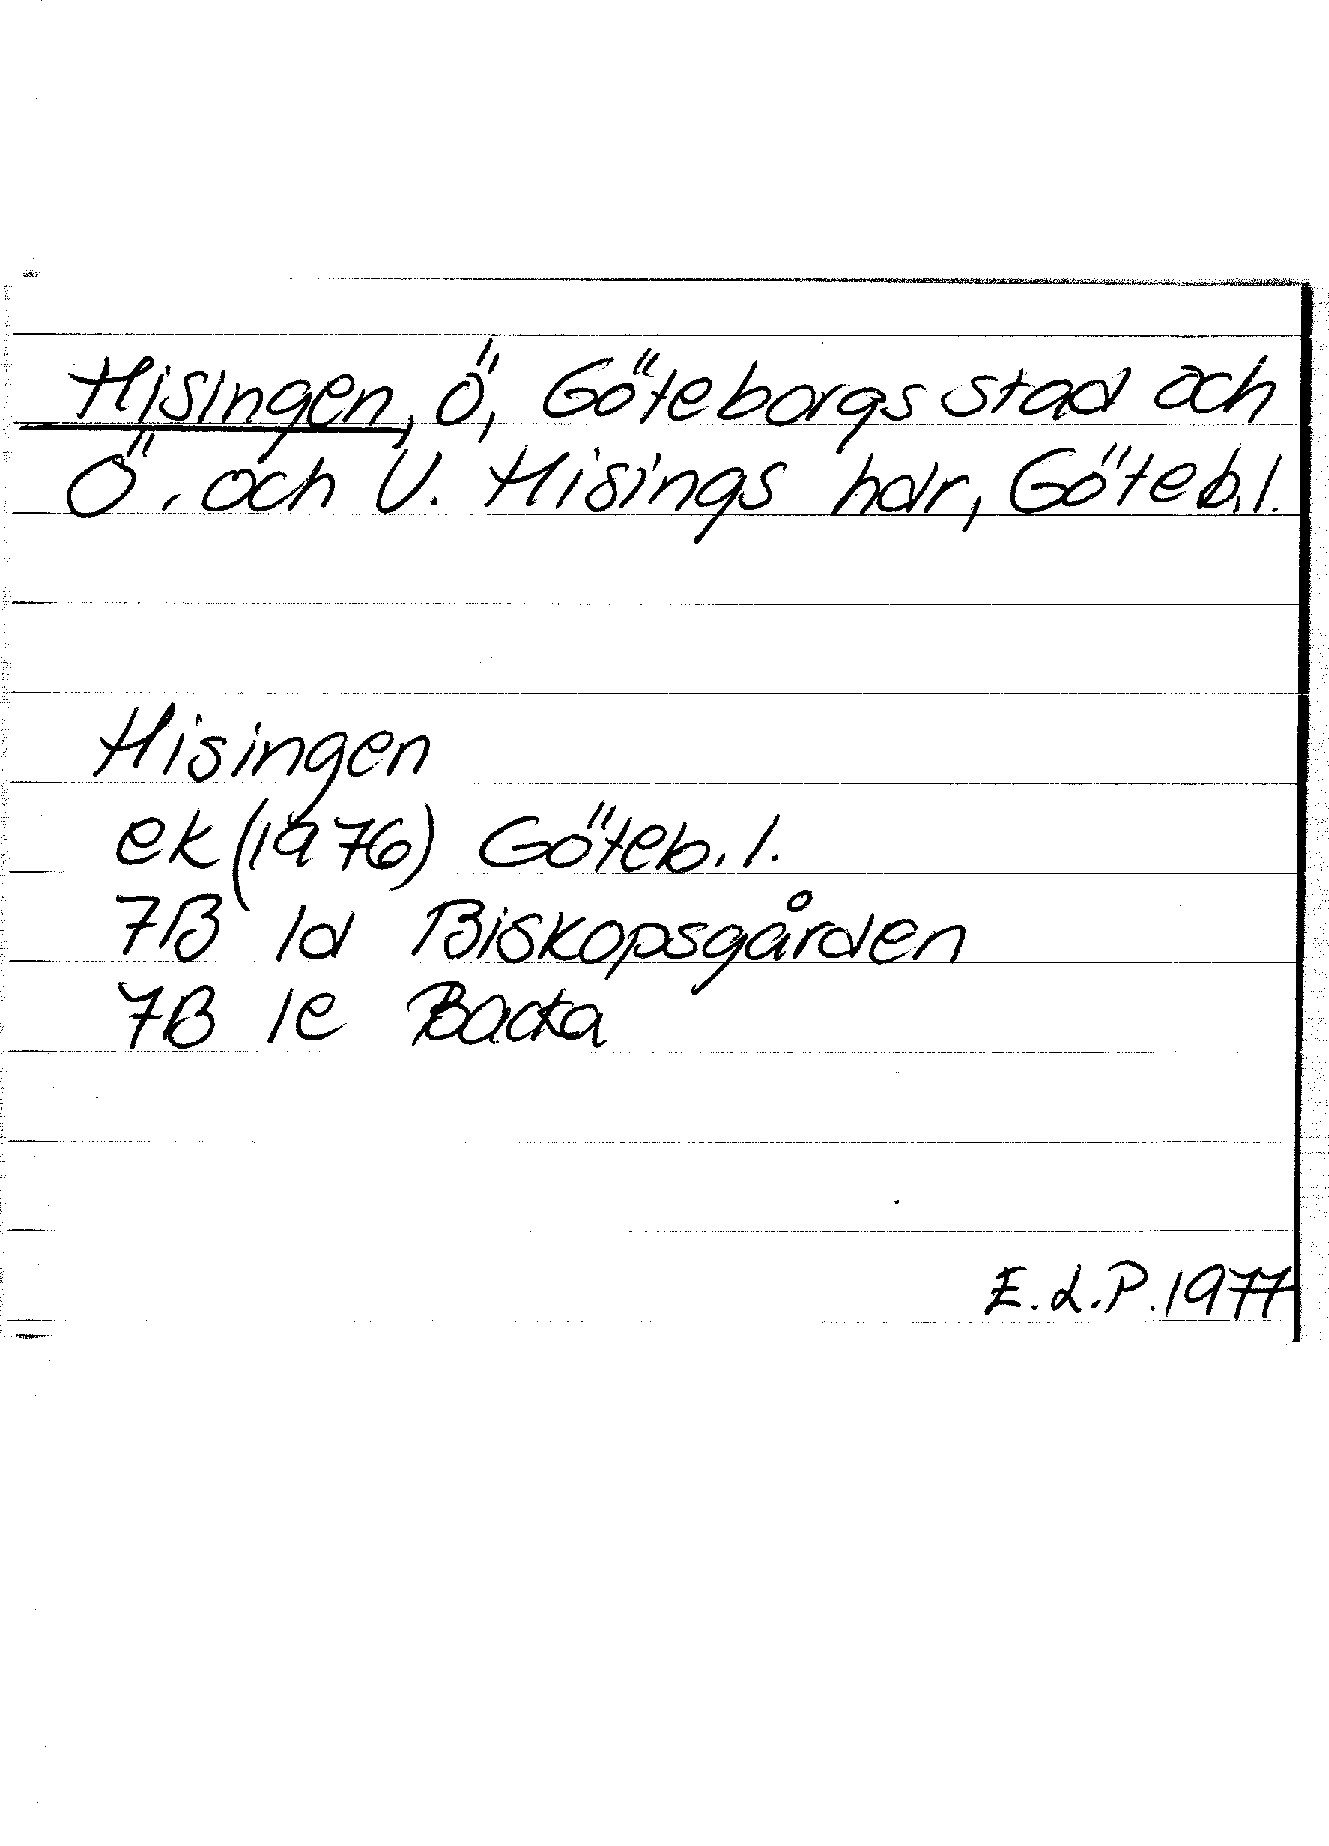 Hisingen, ö, Göteborgs stad och
Ö. och V. Hisings hdr, Göteb.l.
Hisingen
ek (1976) Göteb.l.
7B 1d Biskopsgården
7B 1e Backa
E.L.P.1977